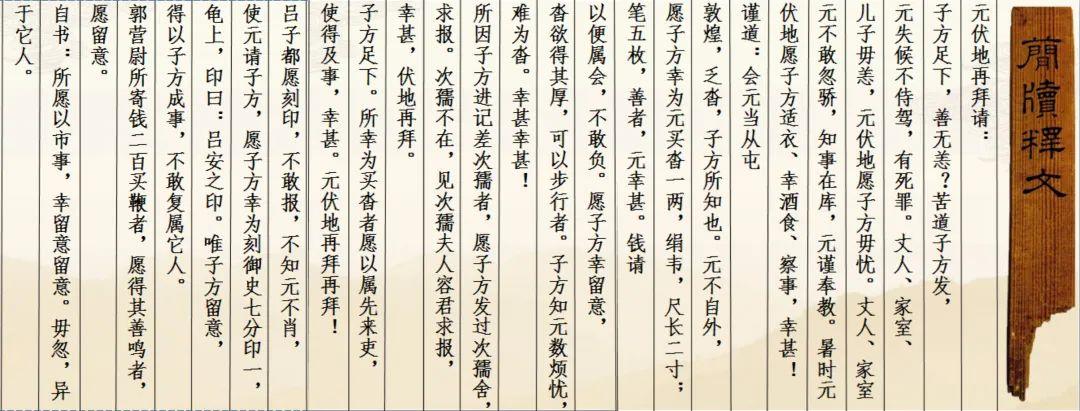 簡牘釋文
元伏地再拜请：
子方足下，善无恙？苦道子方发，
元失候不侍驾，有死罪。丈人、家室、
儿子毋恙，元伏地愿子方毋忧。丈人、家室
元不敢忽骄，知事在库，元谨奉教。暑时元
伏地愿子方适衣、幸酒食、察事，幸甚！
谨道：会元当从屯
敦煌，乏沓，子方所知也。元不自外，
愿子方幸为元买沓一两，绢韦，尺长二寸；
笔五枚，善者，元幸甚。钱请
以便属会，不敢负。愿子方幸留意，
沓欲得其厚，可以步行者。子方知元数烦忧，
难为沓。幸甚幸甚！
所因子方进记差次孺者，愿子方发过次孺舍，
求报。次孺不在，见次孺夫人容君求报，
幸甚，伏地再拜。
子方足下。所幸为买沓者愿以属先来吏，
使得及事，幸甚。元伏地再拜再拜！
吕子都愿刻印，不敢报，不知元不肖，
使元请子方，愿子方幸为刻御史七分印一，
龟上，印曰：吕安之印。唯子方留意，
得以子方成事，不敢复属它人。
郭营尉所寄钱二百买鞭者，愿得其善鸣者，
愿留意。
自书：所愿以市事，幸留意留意。毋忽，异
于它人。